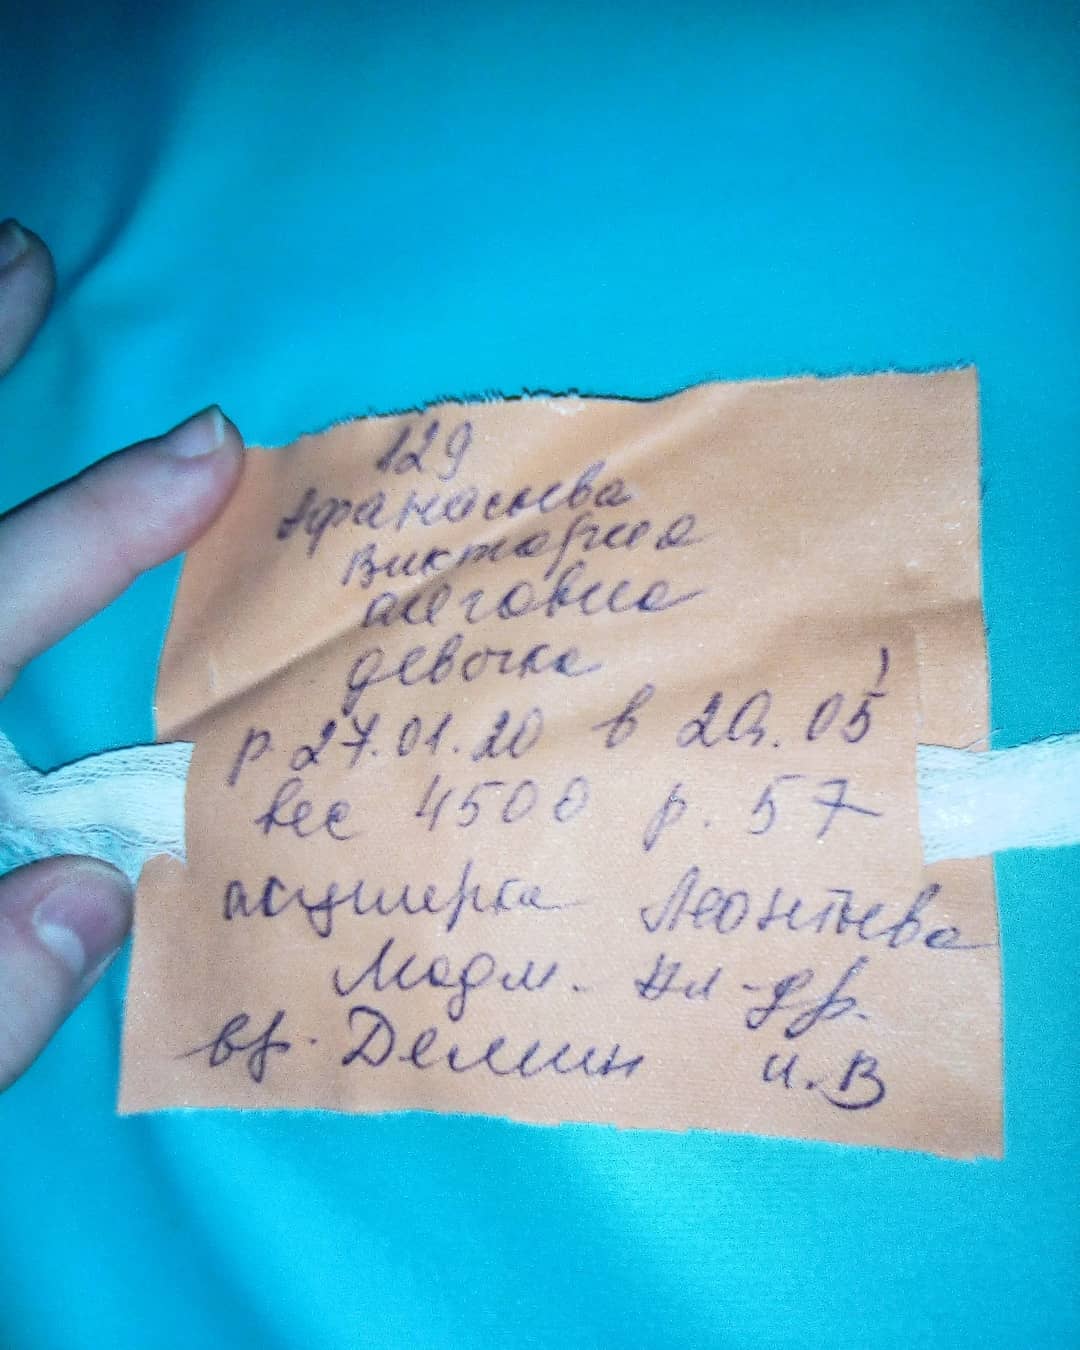 129
Афанасьева
Виктория
Олеговна
девочка
р 27.01.20 в 20. 05'
вес 4500 р. 57
акушерка Леонтьева
вр. Демин И.В